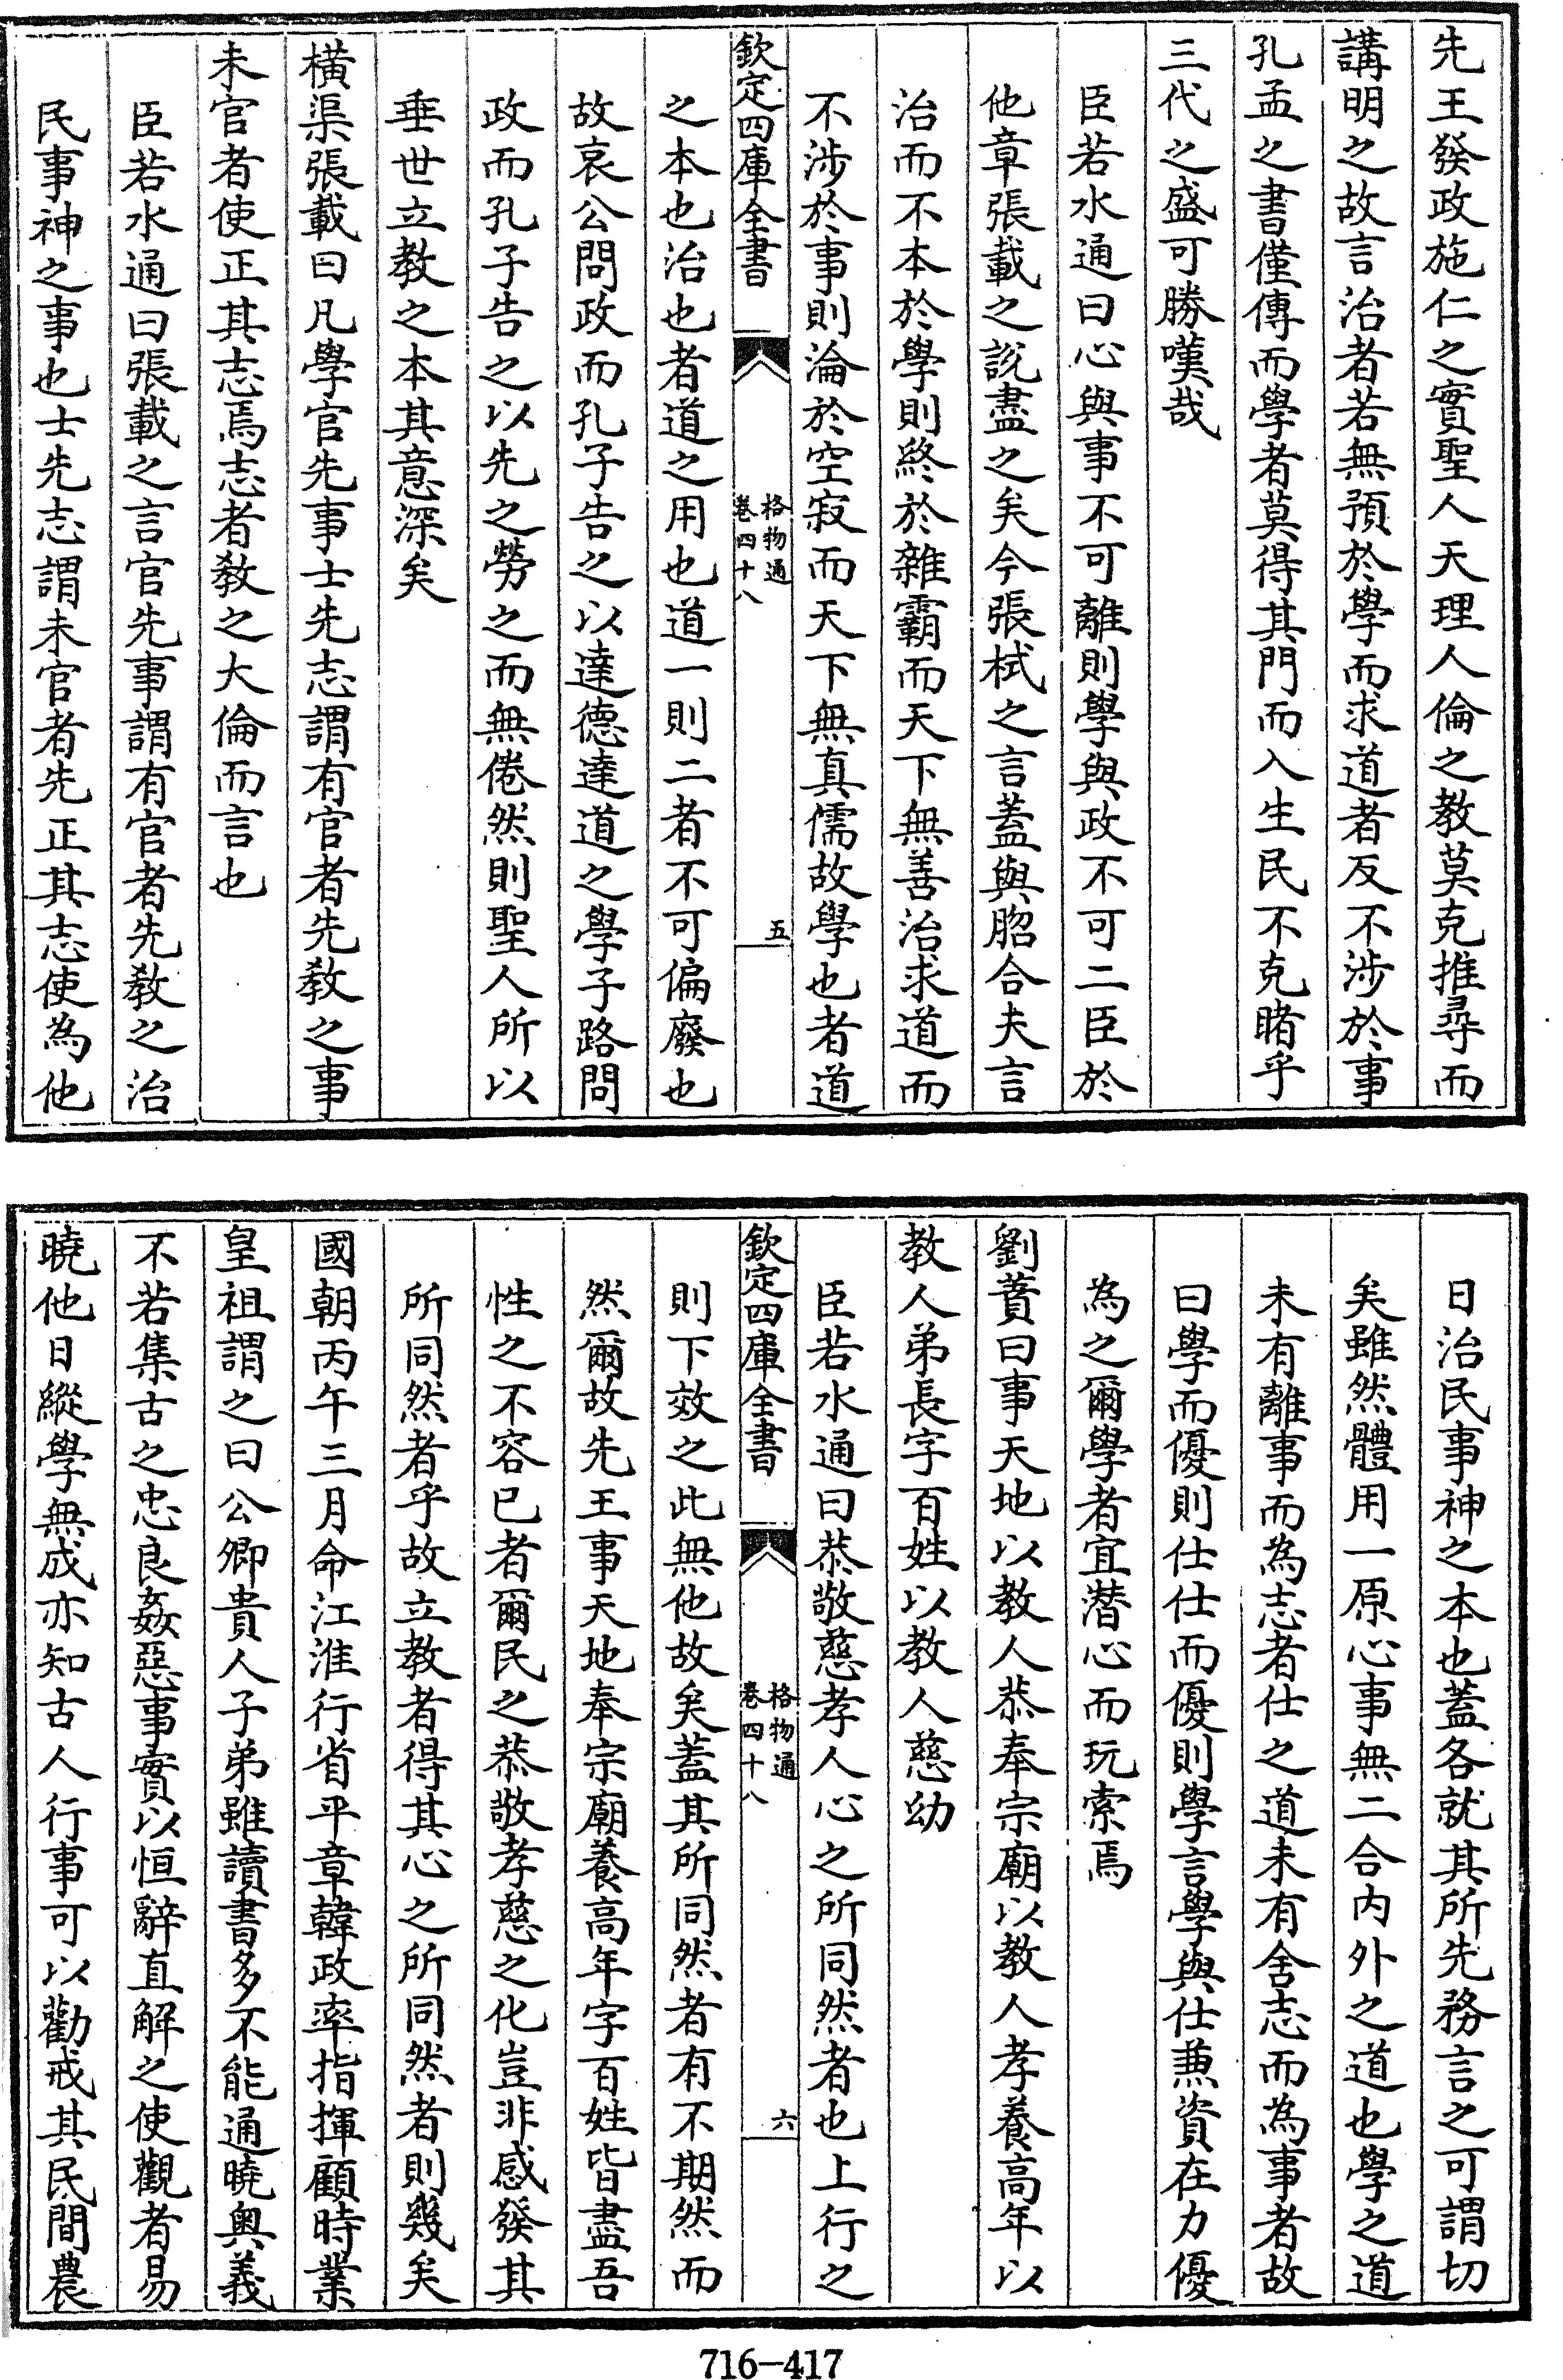 先王發政施仁之實聖人天理人倫之教莫克推尋而
講明之故言治者若無預於學而求道者反不涉於事
孔孟之書僅傳而學者莫得其門而入生民不克睹乎
三代之盛可勝嘆哉
臣若水通曰心與事不可離則學與政不可二臣於
他章張載之說盡之矣今張栻之言蓋與脗合夫言
治而不本於學則終於雜霸而天下無善治求道而
不涉於事則淪於空寂而天下無真儒故學也者道
欽定四庫全書
格物通
卷四十八
五
之本也治也者道之用也道一則二者不可偏廢也
故哀公問政而孔子告之以達德達道之學子路問
政而孔子告之以先之勞之而無倦然則聖人所以
垂世立教之本其意深矣
橫渠張載曰凡學官先事士先志謂有官者先教之事
未官者使正其志焉志者教之大倫而言也
臣若水通曰張載之言官先事謂有官者先教之治
民事神之事也士先志謂未官者先正其志使為他
日治民事神之本也蓋各就其所先務言之可謂切
矣雖然體用一原心事無二合內外之道也學之道
未有離事而為志者仕之道未有舍志而為事者故
曰學而優則仕仕而優則學言學與仕兼資在力優
為之爾學者宜潛心而玩索焉
劉蕡曰事天地以教人恭奉宗廟以教人孝養高年以
教人弟長字百姓以教人慈幼
臣若水通曰恭敬慈孝人心之所同然者也上行之
欽定四庫全書
格物通
卷四十八
六
則下效之此無他故矣蓋其所同然者有不期然而
然爾故先王事天地奉宗廟養高年字百姓皆盡吾
性之不容已者爾民之恭敬孝慈之化豈非感發其
所同然者乎故立教者得其心之所同然者則幾矣
國朝丙午三月命江淮行省平章韓政率指揮顧時業
皇祖謂之曰公卿貴人子弟雖讀書多不能通曉奧義
不若集古之忠良姦惡事實以恒辭直解之使觀者易
曉他日縱學無成亦知古人行事可以勸戒其民間農
716-417